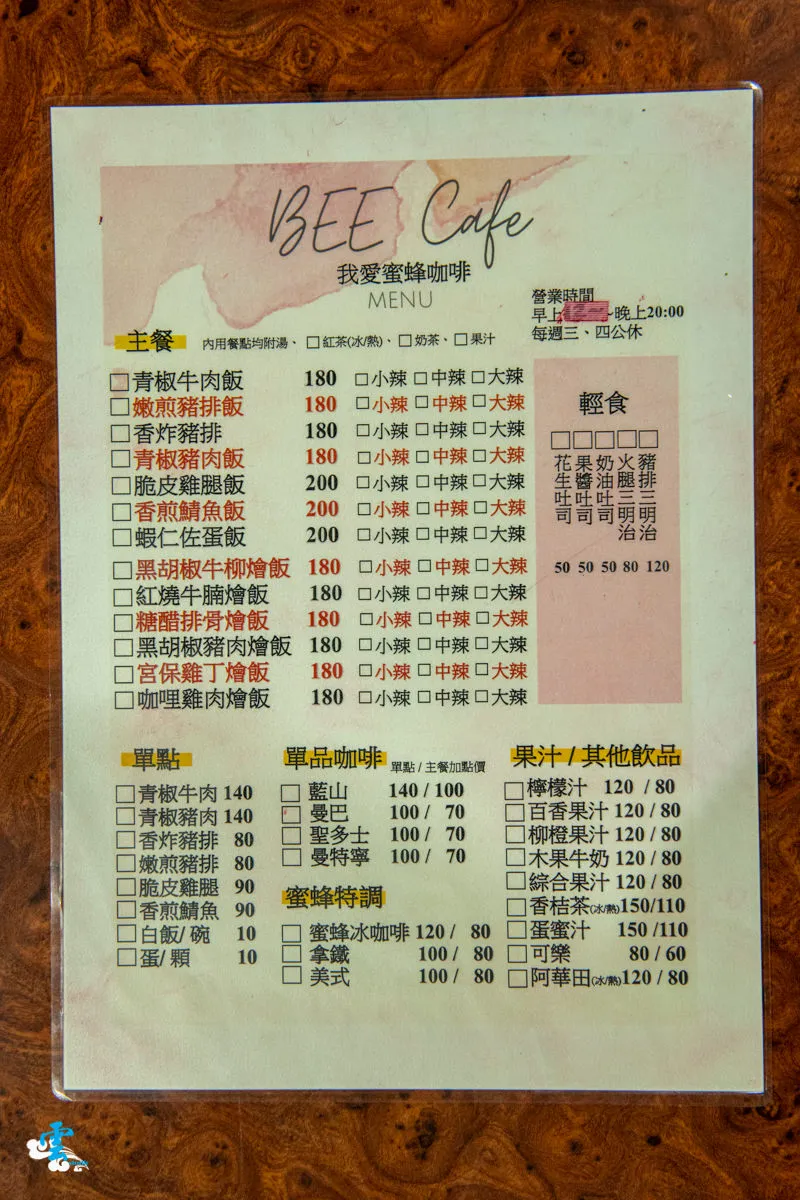 BEE Cafe
我愛蜜蜂咖啡
MENU
營業時間
早上~晚上20:00
每週三、四公休
主餐 內用餐點均附湯、□紅茶(冰/熱)、□奶茶、□果汁
□青椒牛肉飯 180 □小辣 □中辣 □大辣
□嫩煎豬排飯 180 □小辣 □中辣 □大辣
□香炸豬排 180 □小辣 □中辣 □大辣
□青椒豬肉飯 180 □小辣 □中辣 □大辣
□脆皮雞腿飯 200 □小辣 □中辣 □大辣
□香煎鯖魚飯 200 □小辣 □中辣 □大辣
□蝦仁佐蛋飯 200 □小辣 □中辣 □大辣
□黑胡椒牛柳燴飯 180 □小辣 □中辣 □大辣
□紅燒牛腩燴飯 180 □小辣 □中辣 □大辣
□糖醋排骨燴飯 180 □小辣 □中辣 □大辣
□黑胡椒豬肉燴飯 180 □小辣 □中辣 □大辣
□宮保雞丁燴飯 180 □小辣 □中辣 □大辣
□咖哩雞肉燴飯 180 □小辣 □中辣 □大辣
輕食
□花生吐司 50
□果醬吐司 50
□奶油吐司 50
□火腿三明治 80
□豬排三明治 120
單點
□青椒牛肉 140
□青椒豬肉 140
□香炸豬排 80
□嫩煎豬排 80
□脆皮雞腿 90
□香煎鯖魚 90
□白飯/ 碗 10
□蛋/ 顆 10
單品咖啡 單點 / 主餐加點價
□ 藍山 140 / 100
□ 曼巴 100 / 70
□ 聖多士 100 / 70
□ 曼特寧 100 / 70
蜜蜂特調
□ 蜜蜂冰咖啡 120 / 80
□ 拿鐵 100 / 80
□ 美式 100 / 80
果汁 / 其他飲品
□檸檬汁 120 / 80
□百香果汁 120 / 80
□柳橙果汁 120 / 80
□木果牛奶 120 / 80
□綜合果汁 120 / 80
□香桔茶(冰/熱)150/110
□蛋蜜汁 150 /110
□可樂 80 / 60
□阿華田(冰/熱)120 / 80
雲